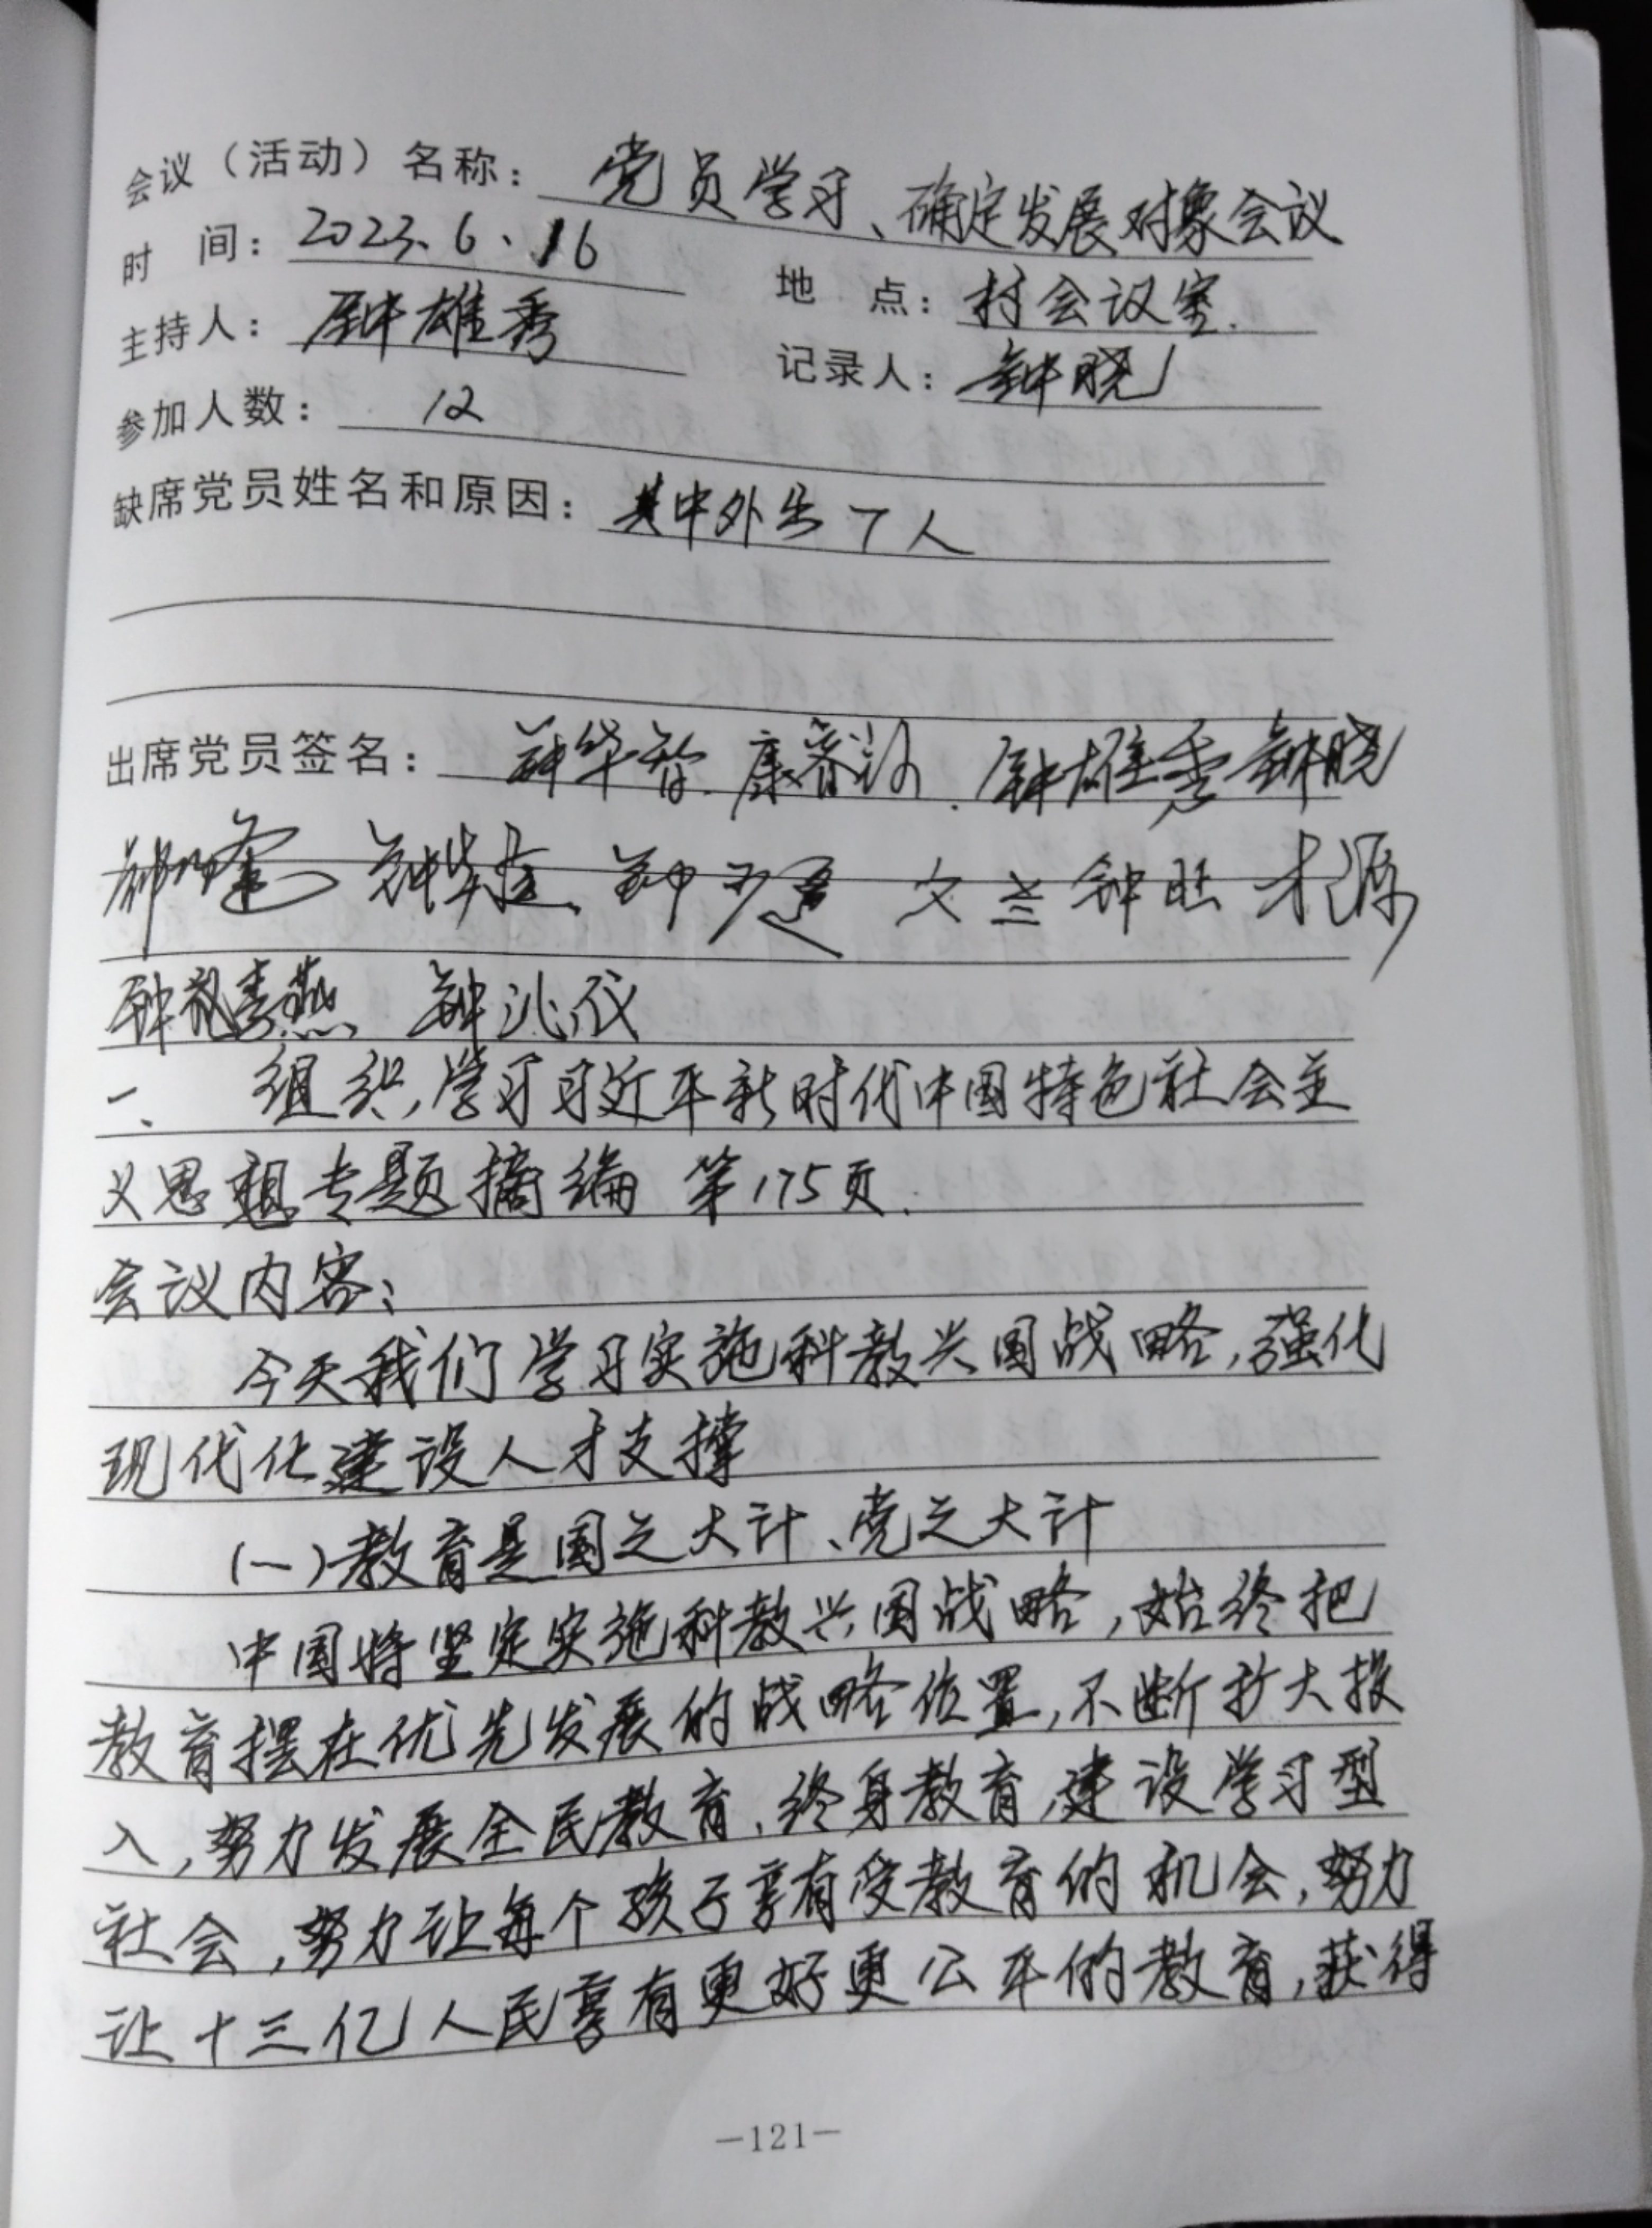 会议（活动）名称：党员学习、确定发展对象会议
时　间：2023.6、16　地　点：村会议室.
主持人：钟雄秀　记录人：钟晓
参加人数：12
缺席党员姓名和原因：其中外出7人
出席党员签名：钟华智. 康 . 钟雄秀 钟晓
钟 钟 文兰 钟旺 才源
钟 燕、钟兆
一、组织,学习习近平新时代中国特色社会主
义思想专题摘编 第175页.
会议内容：
今天我们学习实施科教兴国战略,强化
现代化建设人才支撑
(一)教育是国之大计、党之大计
中国将坚定实施科教兴国战略,始终把
教育摆在优先发展的战略位置,不断扩大投
入,努力发展全民教育、终身教育,建设学习型
社会,努力让每个孩子享有受教育的机会,努力
让十三亿人民享有更好更公平的教育,获得
—121—